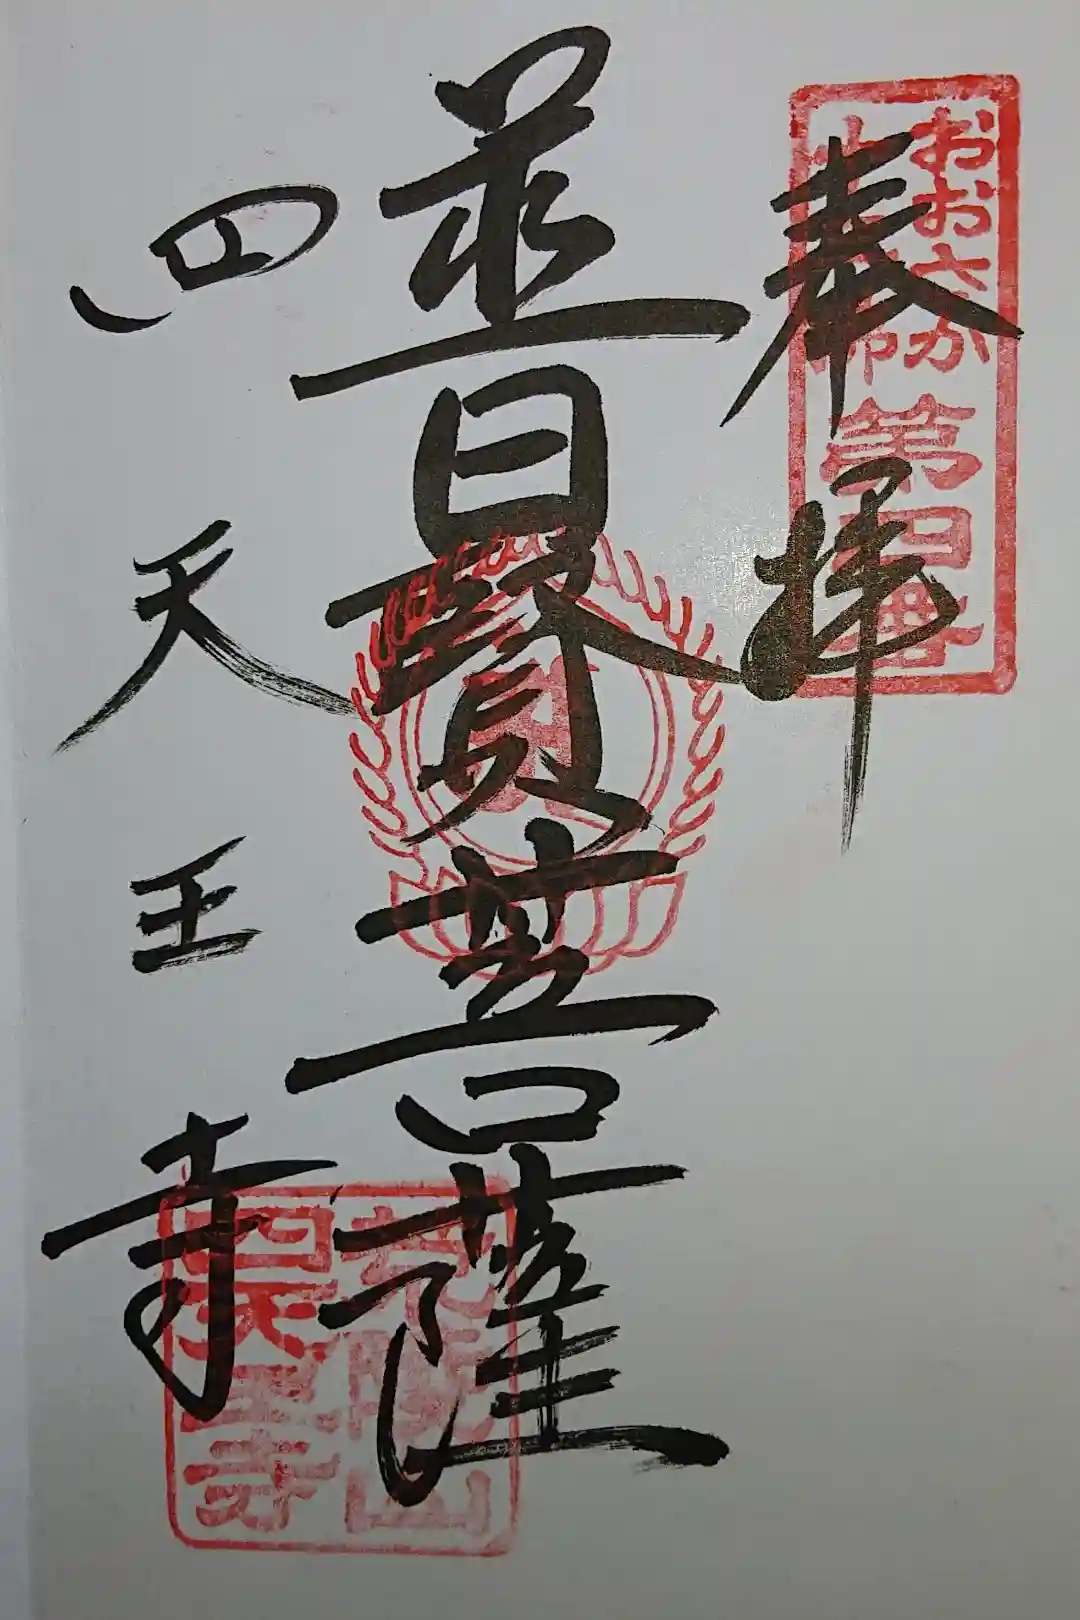 奉拝
おおさか
十三仏
第四番
普賢菩薩
四天王寺
荒陵山
四天王寺